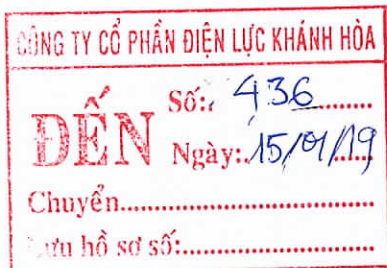 CÔNG TY CỔ PHẦN ĐIỆN LỰC KHÁNH HÒA
ĐẾN
Số:. 436..........
Ngày:.15/01/19......
Chuyển...................................
Lưu hồ sơ số:...........................